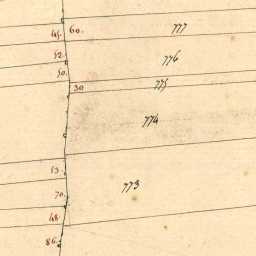 45. 60. 777
52. 776
50. 775
30
774
53.
70. 773
48.
86.